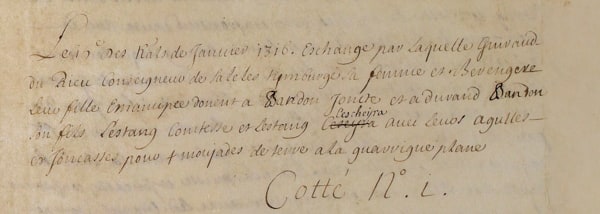 Le 19e des Kals de Janvier 1316. Eschange par laquelle Guiraud
du Puieu Conseigneur de saleles Remourge sa femme et Berengere
leur fille emancipee donent a Bandon Jouise et a durand Bandon
son fils Lestang Comtesse et Lestang Lescheyra avec leurs agulles
et foncasses pour 4 moujades de terre a la guarrigue plane
Cotté No. 1.